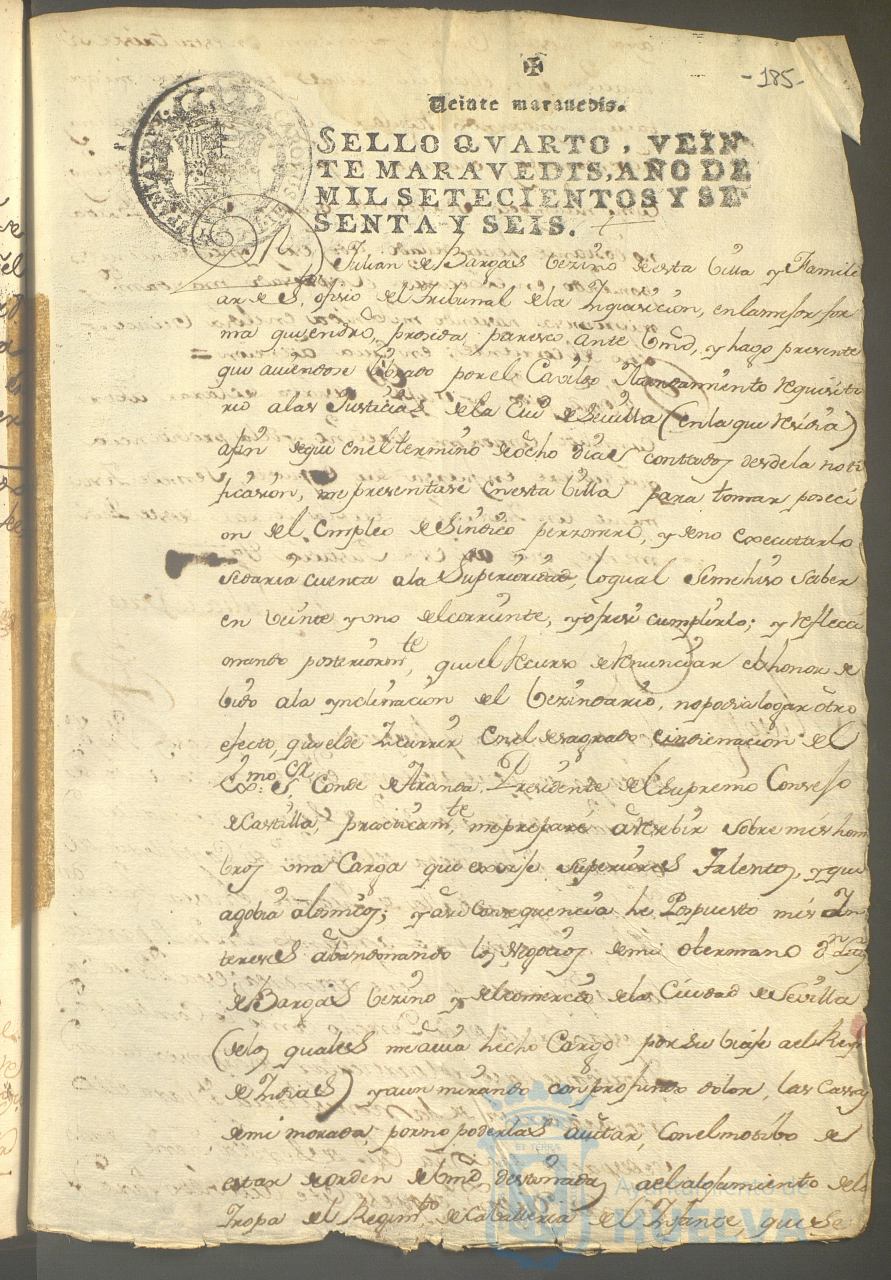 -185-
Veinte marauedis.
SELLO QVARTO, VEIN-
TE MARAVEDIS, AÑO DE
MIL SETECIENTOS Y SE-
SENTA Y SEIS.
Julian de Bargas Vezino de esta Villa y Famili
ar de S.to ofisio del Tribunal de la Inquisicion, en la mejor for
ma que endro, prosida, paresco ante Vmd, y hago presente
que auiendose librado por el Cavildo Mandamiento requisito
rio a las Justicias de la Ciud de Sevilla (en la que residia)
afin de que en el termino de ocho dias contados desde la noti
ficasion, me presentase en esta Villa para tomar poseci
on del empleo de Sindico perzonero, y deno executarlo
sedaria cuenta a la Superioridad, lo qual se me hiso saber
en veinte y uno del corriente, y ofresi cumplirlo; y reflecci
onando posteriorm.te, que el recurso de renunciar el honor de
bido a la ynclinacion del Vezindario, no podia lograr otro
efecto, que el de Incurrir en el desagrado e indignacion del
Ex.mo S.r Conde de Aranda Presidente del Supremo Consejo
de Castilla, practicam.te, me preparé a resebir sobre mis hom
bros una Carga que exsije superiores Talentos, y que
agobia a los mios; y a su consequencia he Pospuesto mis In
tereses abandonando los Negocios de mi Hermano D.n
de Bargas Vezino y del comercio de la Ciudad de Sevilla
(de los quales me avia hecho Cargo por su viaje a el Reyno
de Indias) y aun mirando con profundo dolor, las Cassas
de mi morada, por no poderlas auitar, con el motibo de
estar de orden de Vmd, destinadas a el alojamiento de la
Tropa del Regim.to de Caballeria del Infante, que se
Ayuntamiento de
HUELVA